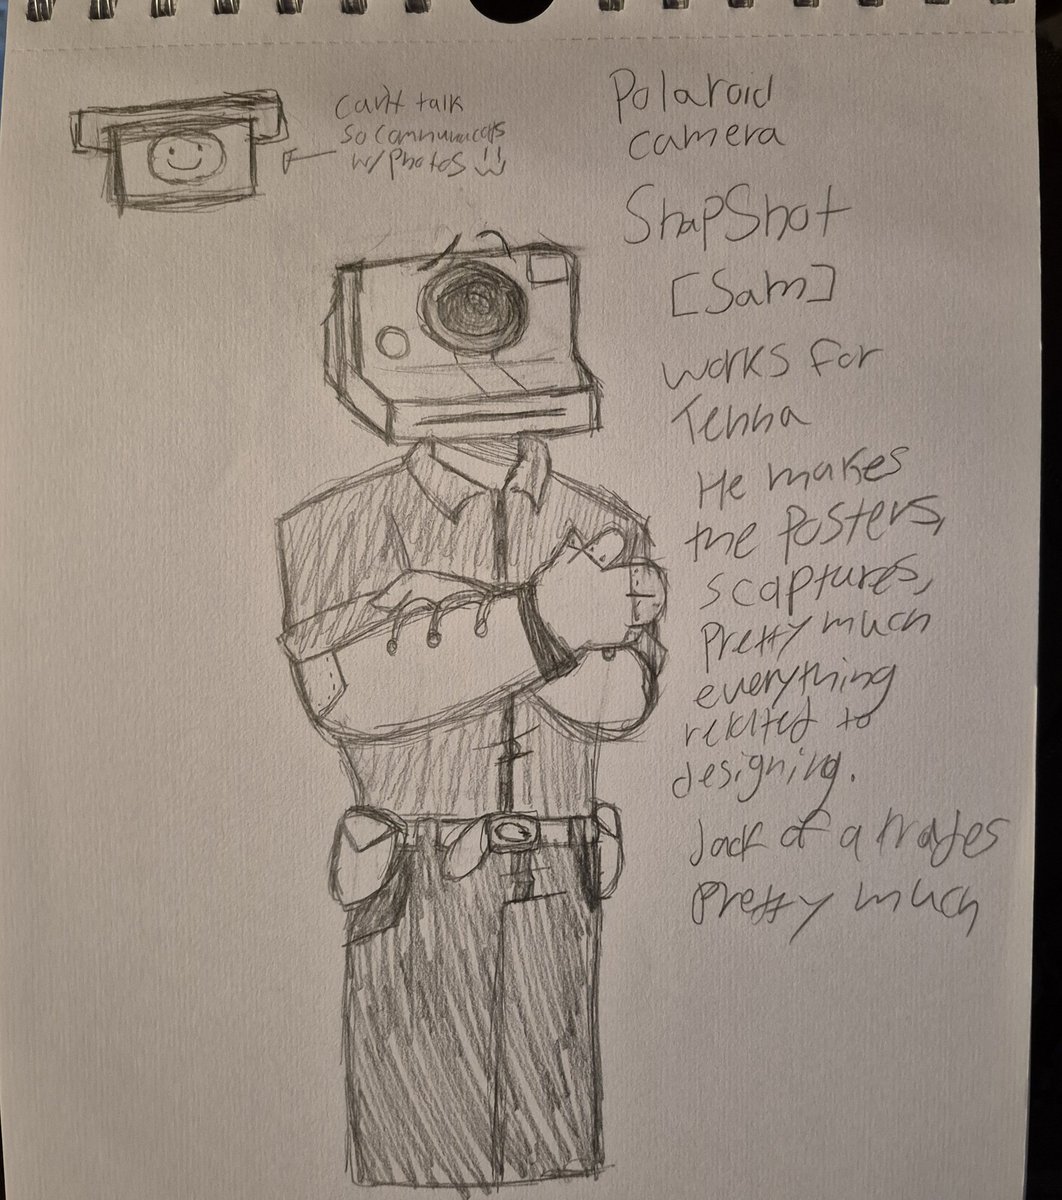 Can't talk
so communicats
w/ Photos
Polaroid
camera
SnapShot
[Sam]
works for
Tenna
He makes
the posters,
scaptures,
Pretty much
everything
related to
designing.
Jack of a trades
Pretty much